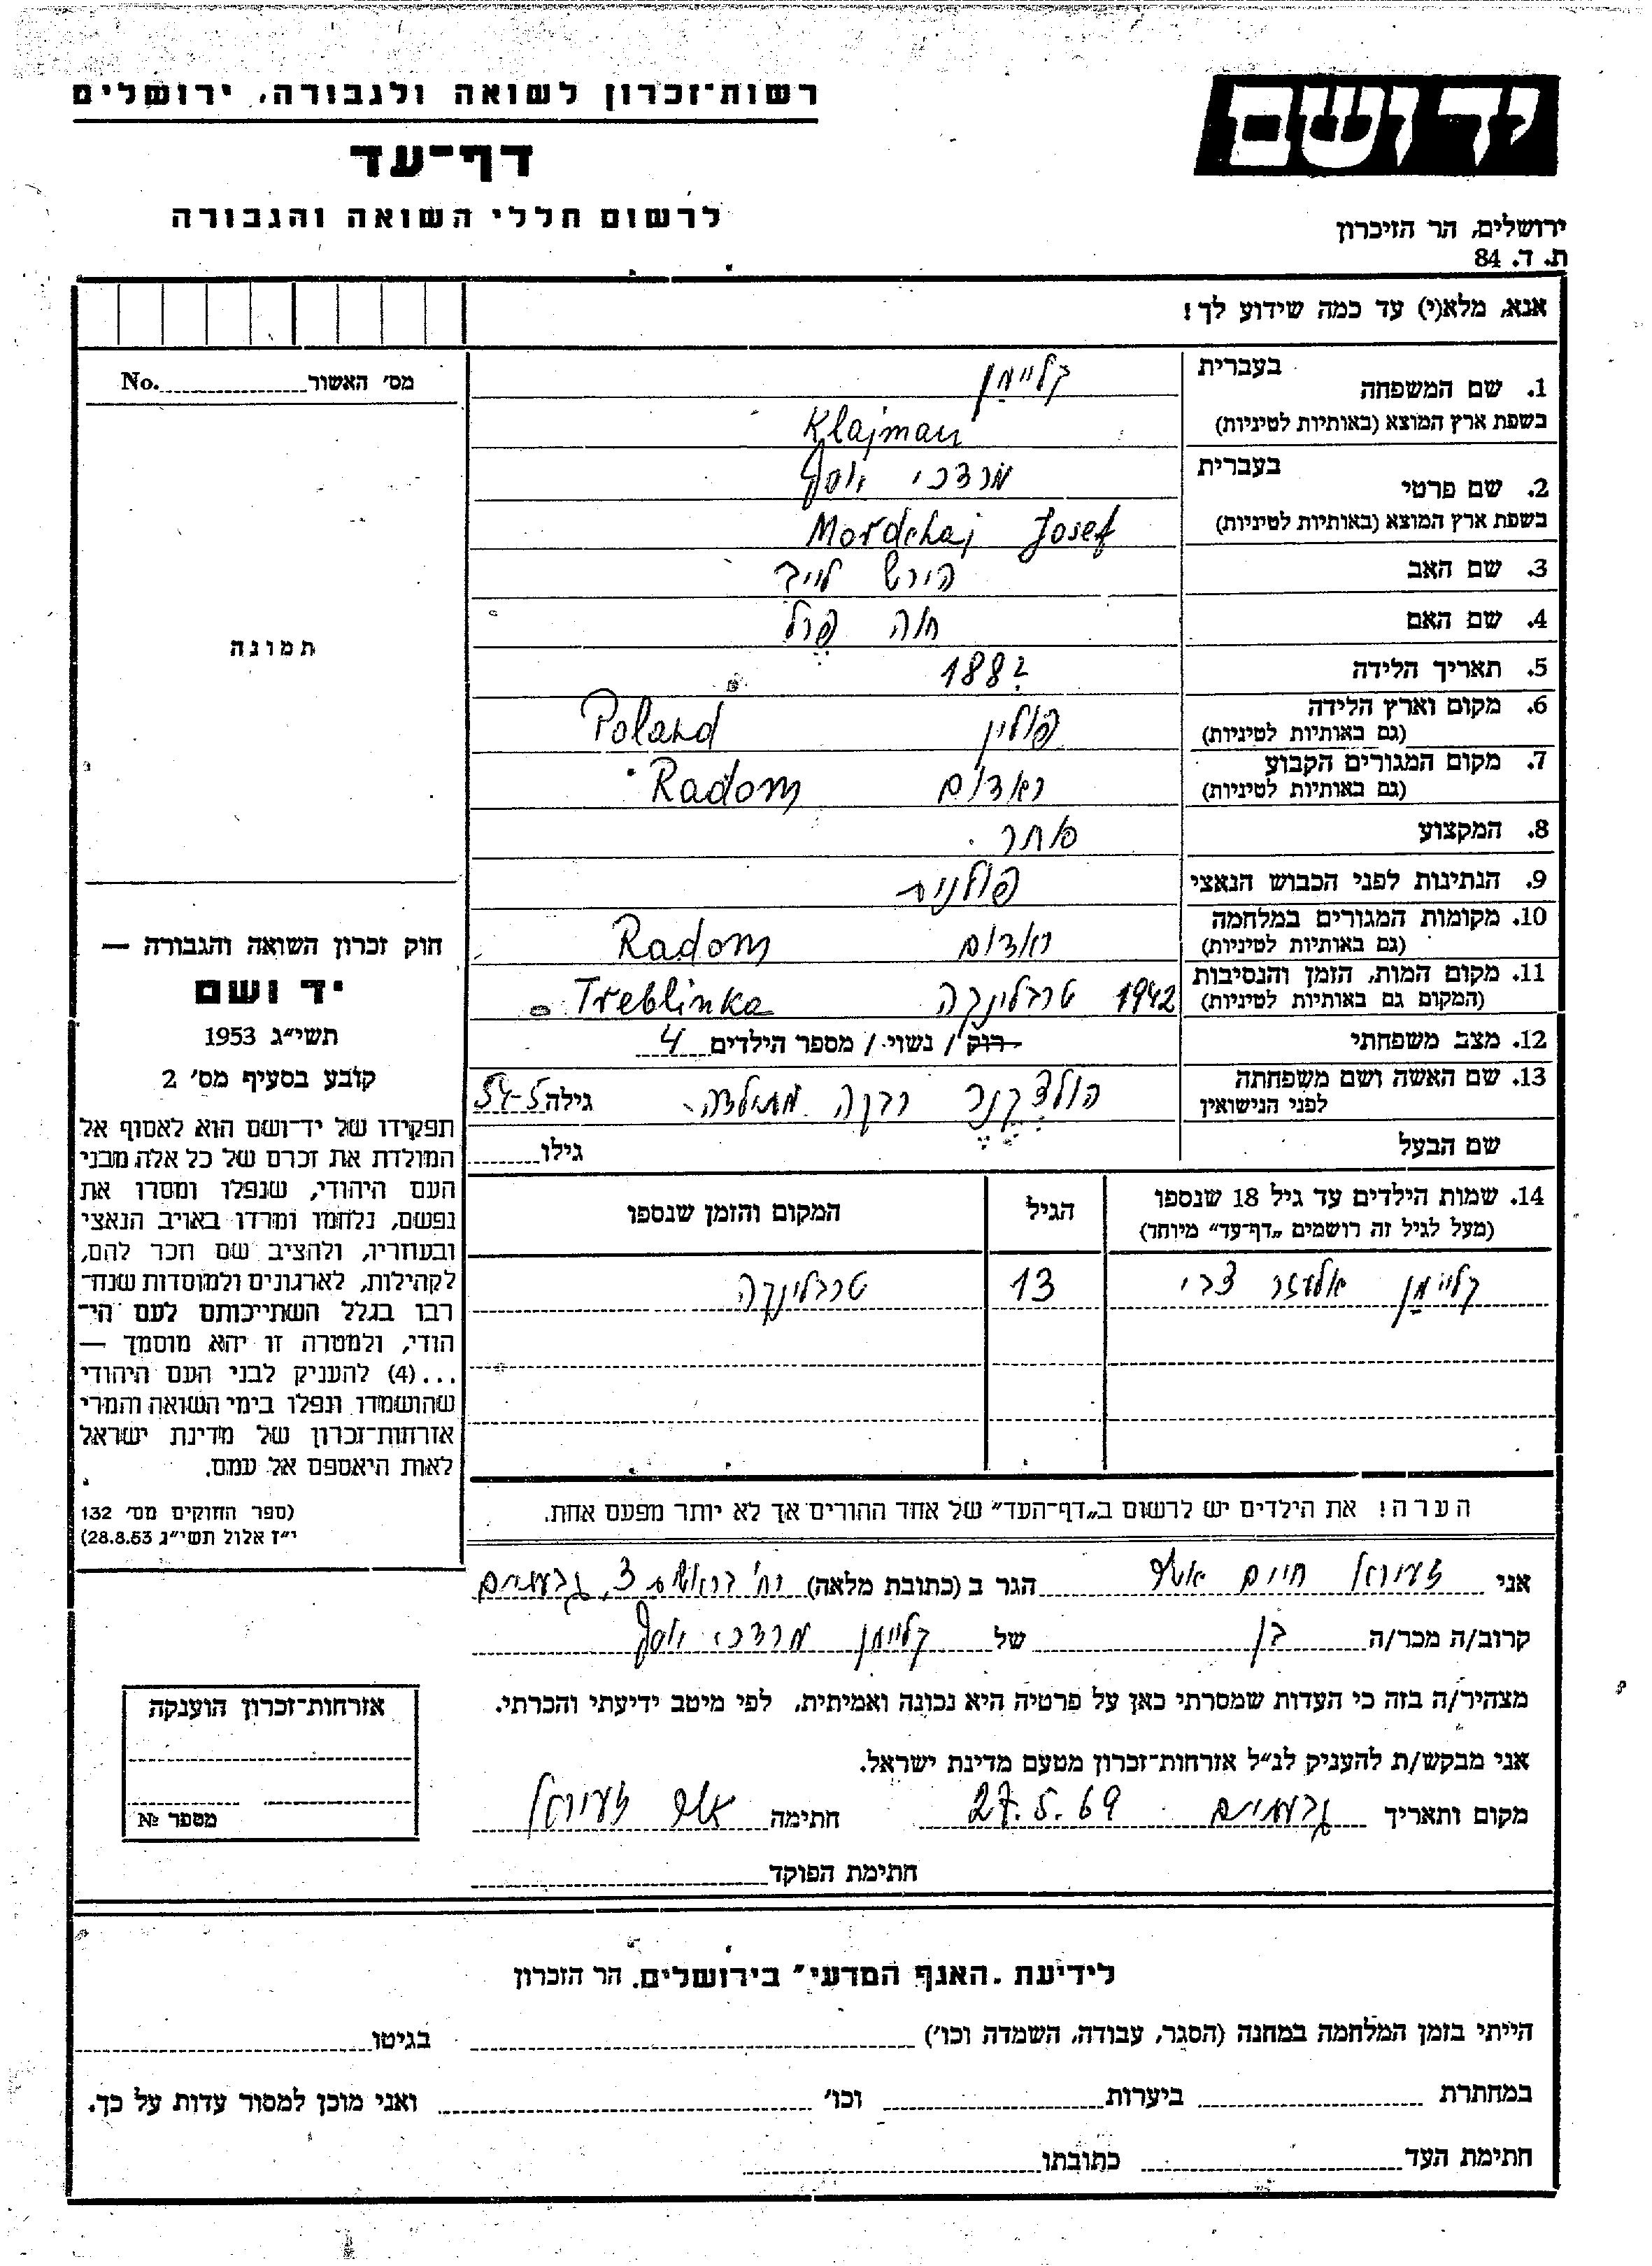 יד ושם
רשות־זכרון לשואה ולגבורה, ירושלים
דף־עד
לרשום חללי השואה והגבורה
ירושלים, הר הזיכרון
ת. ד. 84
אנא, מלא(י) עד כמה שידוע לך!
1. שם המשפחה בעברית קליימן
בשפת ארץ המוצא (באותיות לטיניות) Klajman
2. שם פרטי בעברית מרדכי יוסף
בשפת ארץ המוצא (באותיות לטיניות) Mordchaj Josef
3. שם האב הירש לייב
4. שם האם חוה פרל
5. תאריך הלידה 188?
6. מקום וארץ הלידה פולין Poland
(גם באותיות לטיניות)
7. מקום המגורים הקבוע ראדום Radom
(גם באותיות לטיניות)
8. המקצוע סוחר
9. הנתינות לפני הכבוש הנאצי פולנית
10. מקומות המגורים במלחמה ראדום Radom
(גם באותיות לטיניות)
11. מקום המות, הזמן והנסיבות 1942 טרבלינקה Treblinka
(המקום גם באותיות לטיניות)
12. מצב משפחתי רוק / נשוי / מספר הילדים 4
13. שם האשה ושם משפחתה רבקה גילה 54-5
לפני הנישואין
שם הבעל גילו
14. שמות הילדים עד גיל 18 שנספו הגיל המקום והזמן שנספו
(מעל לגיל זה רושמים „דף־עד" מיוחד)
קליימן אלעזר צבי 13 טרבלינקה
הערה! את הילדים יש לרשום ב„דף־העד" של אחד ההורים אך לא יותר מפעם אחת.
מס׳ האשור No.
תמונה
חוק זכרון השואה והגבורה —
יד ושם
תשי״ג 1953
קובע בסעיף מס׳ 2
תפקידו של יד־ושם הוא לאסוף אל
המולדת את זכרם של כל אלה מבני
העם היהודי, שנפלו ומסרו את
נפשם, נלחמו ומרדו באויב הנאצי
ובעוזריו, ולהציב שם וזכר להם,
לקהילות, לארגונים ולמוסדות שנח־
רבו בגלל השתייכותם לעם הי־
הודי, ולמטרה זו יהא מוסמך —
...(4) להעניק לבני העם היהודי
שהושמדו ונפלו בימי השואה והמרי
אזרחות־זכרון של מדינת ישראל
לאות היאספם אל עמם.
(ספר החוקים מס׳ 132
י״ז אלול תשי״ג 28.8.53)
אני חיים אשר הגר ב (כתובת מלאה) רח׳ 3, גבעתיים
קרוב/ה מכר/ה בן של קליימן מרדכי יוסף
מצהיר/ה בזה כי העדות שמסרתי כאן על פרטיה היא נכונה ואמיתית, לפי מיטב ידיעתי והכרתי.
אני מבקש/ת להעניק לנ״ל אזרחות־זכרון מטעם מדינת ישראל.
מקום ותאריך גבעתיים 27.5.69 חתימה אשר
חתימת הפוקד
אזרחות־זכרון הוענקה
מספר №
לידיעת „האגף המדעי" בירושלים, הר הזכרון
הייתי בזמן המלחמה במחנה (הסגר, עבודה, השמדה וכו׳) בגיטו
במחתרת ביערות וכו׳ ואני מוכן למסור עדות על כך.
חתימת העד כתובתו